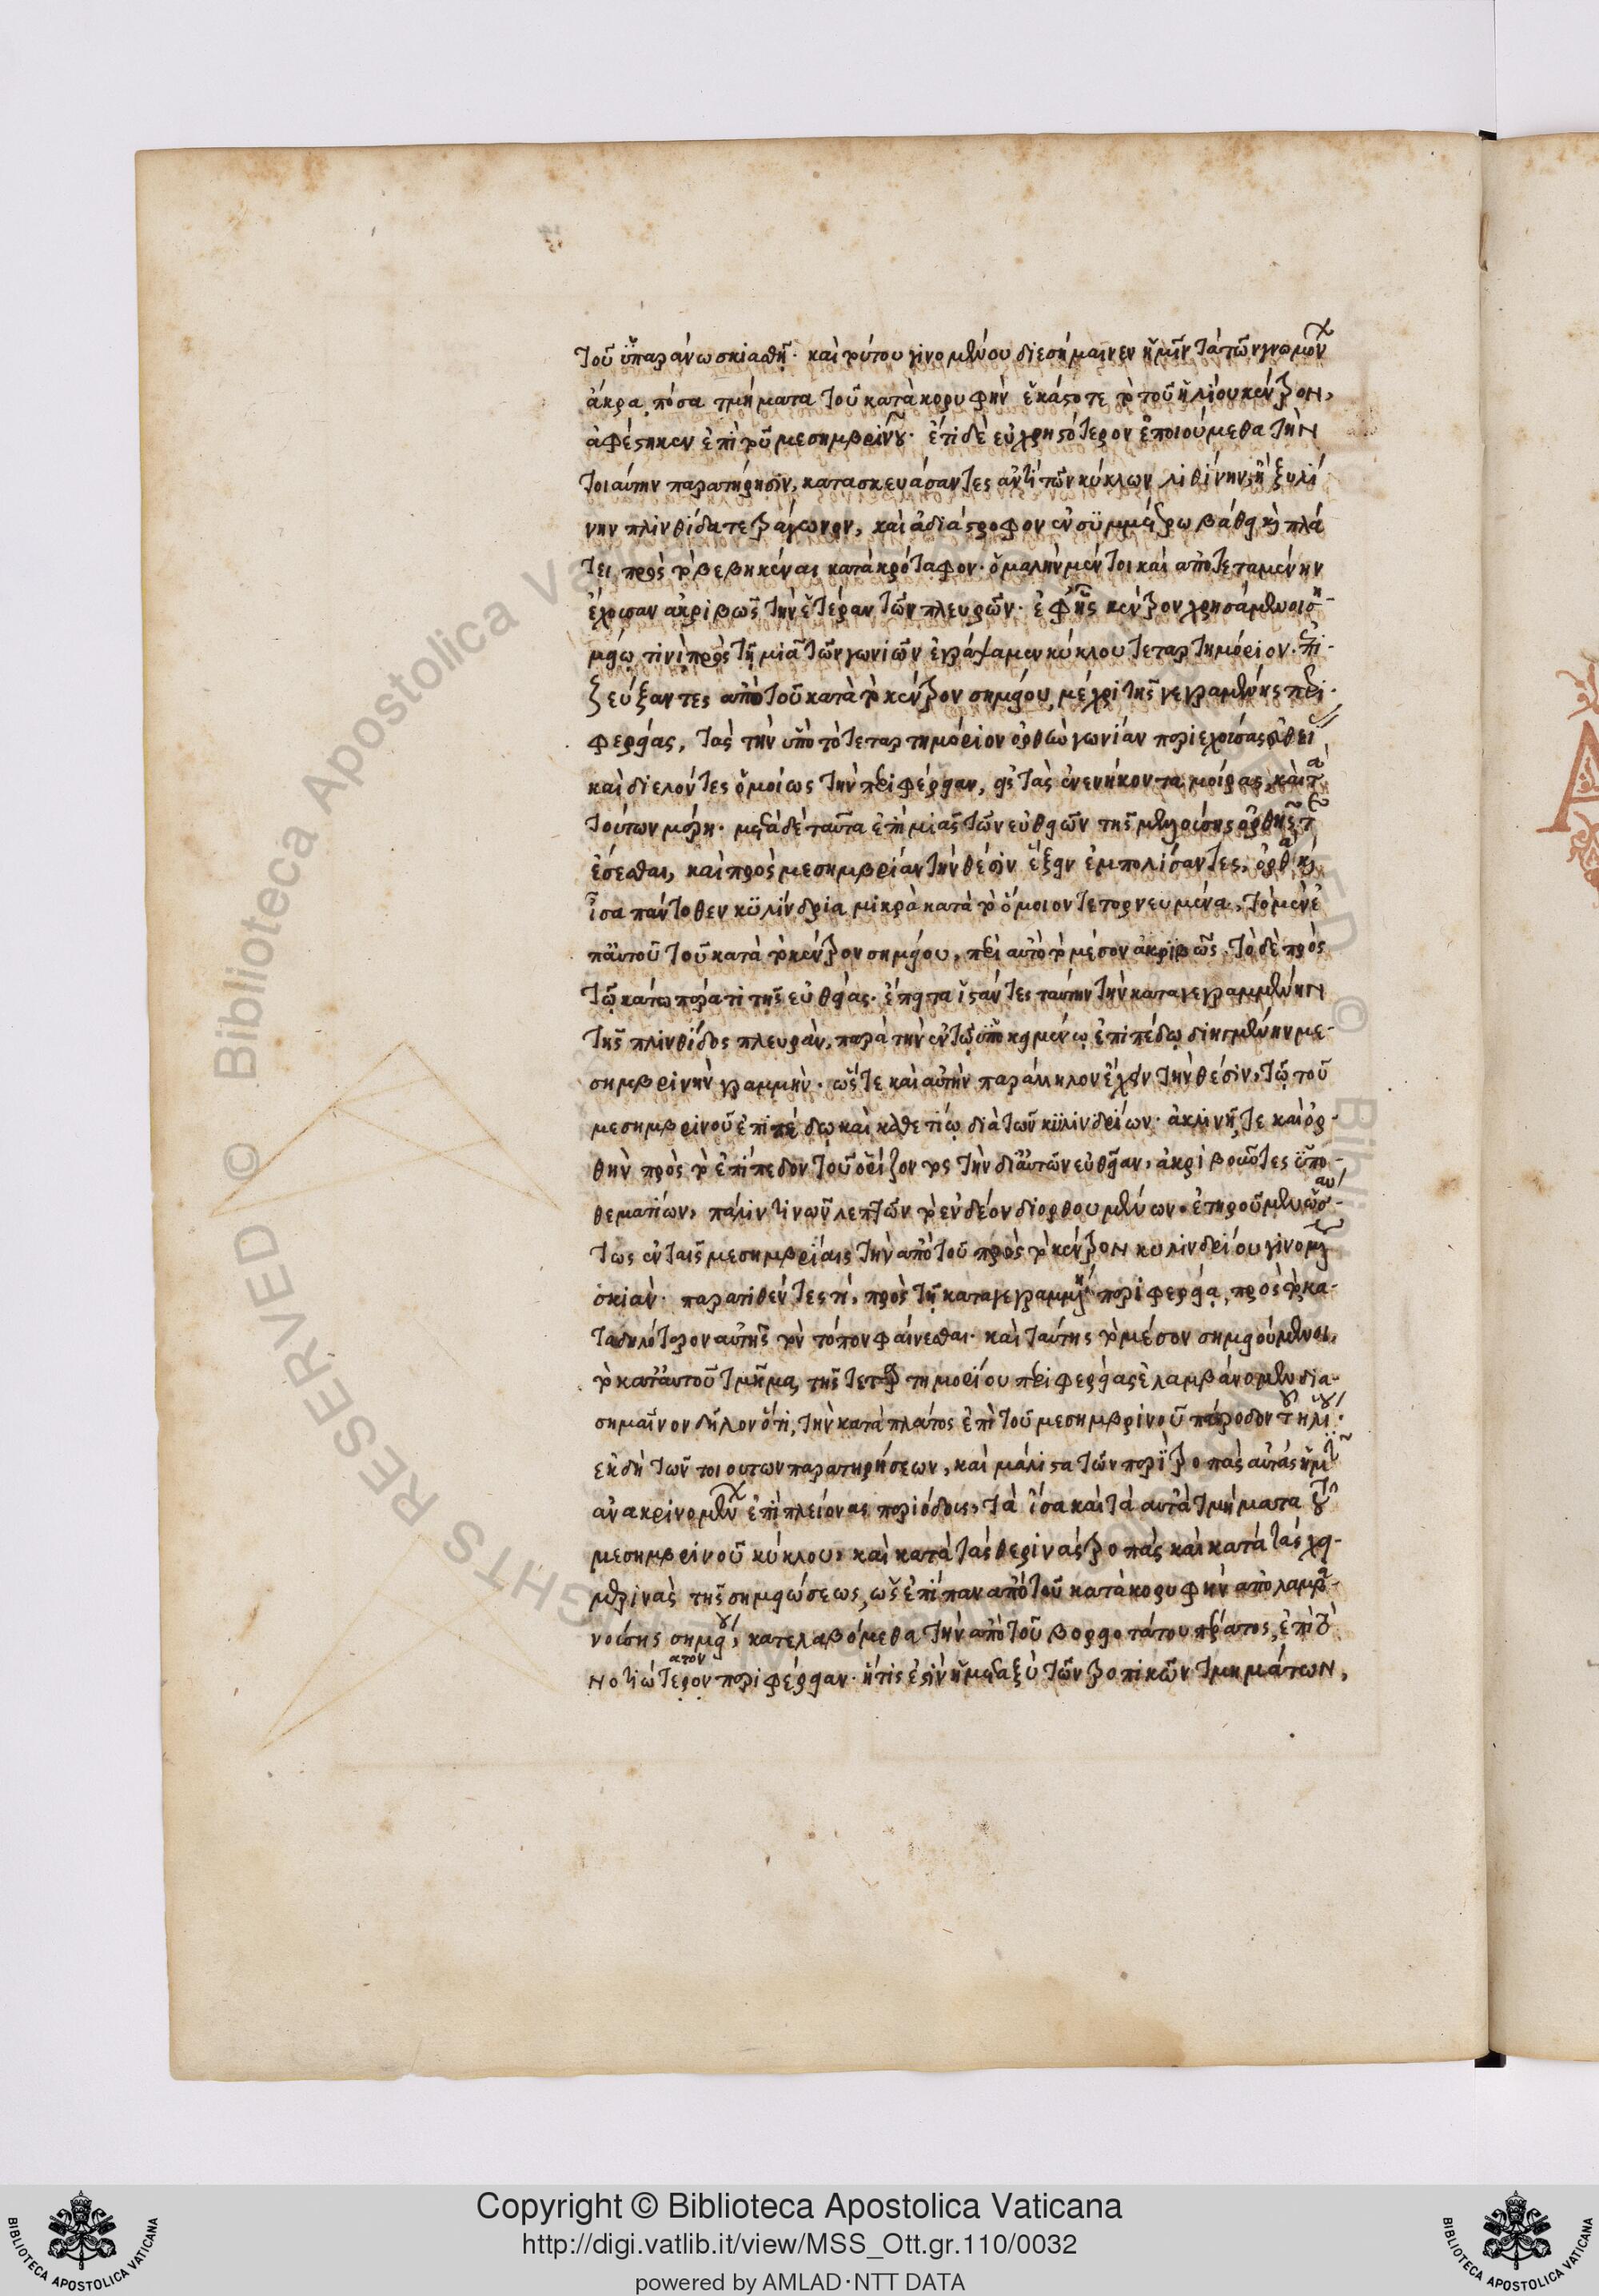 τοῦ ὑπεράνω σκιασθῇ. καὶ τούτου γινομένου διεσήμαινεν ἡμῖν τὰ τῶν γνωμόν
ἄκρα πόσα τμήματα τοῦ κατὰ κορυφὴν ἑκάστοτε τὸ τοῦ ἡλίου κέντρον,
ἀφέστηκεν ἐπὶ τοῦ μεσημβρινοῦ. ἔτι δὲ εὐχρηστότερον ἐποιούμεθα τὴν
τοιαύτην παρατήρησιν, κατασκευάσαντες ἀντὶ τῶν κύκλων λιθίνην ἢ ξυλί
νην πλινθίδα τετράγωνον, καὶ ἀδιάστροφον ἐν συμμέτρω βάθει καὶ πλά
τει πρὸς τὸ βεβηκέναι κατὰ κρόταφον. ὁμαλὴν μέντοι καὶ ἀποτεταμένην
ἔχουσαν ἀκριβῶς τὴν ἑτέραν τῶν πλευρῶν. ἐφ' ἧς κέντρον χρησάμενοι ση-
μείῳ τινὶ πρὸς τῇ μιᾷ τῶν γωνιῶν ἐγράψαμεν κύκλου τεταρτημόριον. ἐπι-
ζεύξαντες ἀπὸ τοῦ κατὰ τὸ κέντρον σημείου μέχρι τῆς γεγραμμένης περι-
φερείας, τὰς τὴν ὑπὸ τὸ τεταρτημόριον ὀρθὴν γωνίαν περιεχούσας εὐθεί
καὶ διελόντες ὁμοίως τὴν περιφέρειαν, εἰς τὰς ἐνενήκοντα μοίρας, καὶ τὰ
τούτων μέρη. μετὰ δὲ ταῦτα ἐπὶ μιᾶς τῶν εὐθειῶν τῆς μελλούσης ὀρθῆς τε
ἔσεσθαι, καὶ πρὸς μεσημβρίαν τὴν θέσιν ἕξειν ἐμπολίσαντες, ὀρθὰ καὶ
ἴσα πάντοθεν κυλίνδρια μικρὰ κατὰ τὸ ὅμοιον τετορνευμένα, τὸ μὲν ἐ
π' αὐτοῦ τοῦ κατὰ τὸ κέντρον σημείου, περὶ αὐτὸ τὸ μέσον ἀκριβῶς, τὸ δὲ πρὸς
τῷ κάτω πέρατι τῆς εὐθείας. ἔπειτα ἱστάντες ταύτην τὴν καταγεγραμμένην
τῆς πλινθίδος πλευρὰν, παρὰ τὴν ἐν τῷ ὑποκειμένῳ ἐπιπέδῳ διηγμένην με-
σημβρινὴν γραμμὴν. ὥστε καὶ αὐτὴν παράλληλον ἔχειν τὴν θέσιν, τῷ τοῦ
μεσημβρινοῦ ἐπιπέδῳ καὶ καθετίῳ διὰ τῶν κυλινδρίων. ἀκλινῆ τε καὶ ὀρ-
θὴν πρὸς τὸ ἐπίπεδον τοῦ ὁρίζοντος τὴν δι' αὐτῶν εὐθεῖαν, ἀκριβοῦντες ὑπο-
θεματίων, πάλιν τινῶν λεπτῶν τὸ ἐνδέον διορθουμένων. ἐτηροῦμεν ὡσαύ-
τως ἐν ταῖς μεσημβρίαις τὴν ἀπὸ τοῦ πρὸς τὸ κέντρον κυλινδρίου γινομένην
σκιὰν. παρατιθέντες τί, πρὸς τῇ καταγεγραμμένῃ περιφερείᾳ, πρὸς τὸ κα-
ταδηλότερον αὐτῆς τὸν τόπον φαίνεσθαι. καὶ ταύτης τὸ μέσον σημειούμενοι,
τὸ κατ' αὐτοῦ τμῆμα, τῆς τεταρτημορίου περιφερείας ἐλαμβάνομεν δια-
σημαῖνον δηλονότι, τὴν κατὰ πλάτος ἐπὶ τοῦ μεσημβρινοῦ πάροδον τοῦ ἡλίου.
ἐκ δὴ τῶν τοιούτων παρατηρήσεων, καὶ μάλιστα τῶν περὶ τροπὰς αὐτὰς ἡμῖν
ἀνακρινομένων ἐπὶ πλείονας περιόδους, τὰ ἴσα καὶ τὰ αὐτὰ τμήματα τοῦ
μεσημβρινοῦ κύκλου, καὶ κατὰ τὰς θερινὰς τροπὰς καὶ κατὰ τὰς χει-
μερινὰς τῆς σημειώσεως, ὡς ἐπίπαν ἀπὸ τοῦ κατὰ κορυφὴν ἀπολαμβα-
νούσης σημείου, κατελαβόμεθα τὴν ἀπὸ τοῦ βορειοτάτου πέρατος, ἐπὶ τὸ
νοτιώτερον περιφέρειαν. ἥτις ἐστὶν ἡ μεταξὺ τῶν τροπικῶν τμημάτων,
ατον
Copyright © Biblioteca Apostolica Vaticana
http://digi.vatlib.it/view/MSS_Ott.gr.110/0032
powered by AMLAD·NTT DATA
BIBLIOTECA APOSTOLICA VATICANA
BIBLIOTECA APOSTOLICA VATICANA